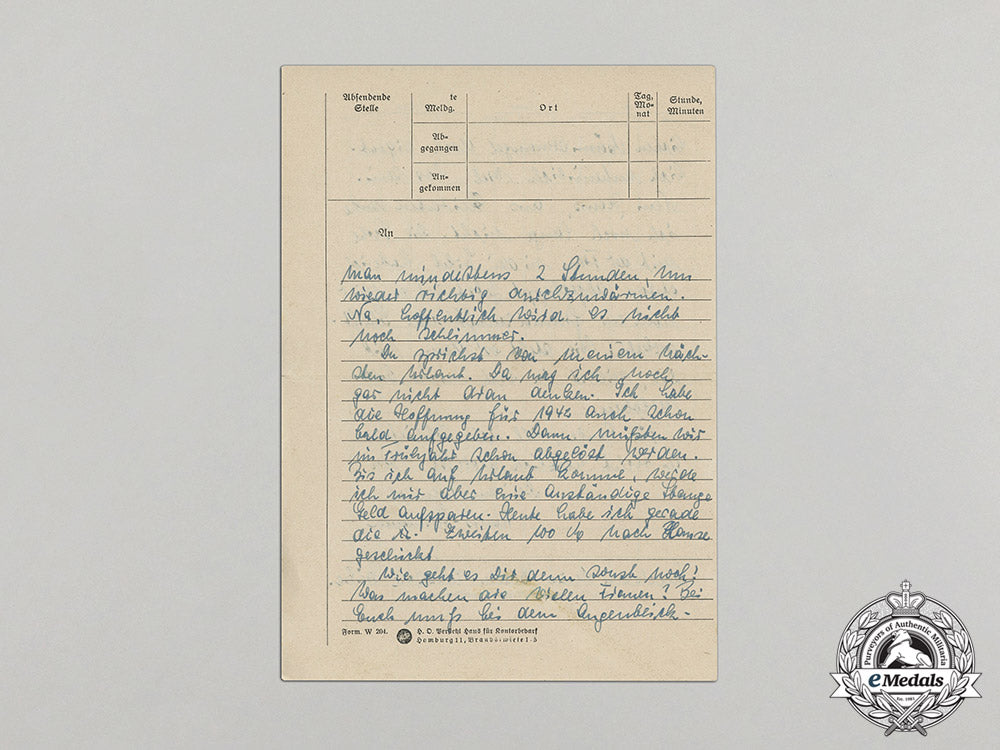 Absendende
Stelle
te
Meldg.
Ort
Tag,
Mo-
nat
Stunde,
Minuten
Ab-
gegangen
An-
gekommen
An
man mindestens 2 Stunden um
wieder richtig durchzuwärmen.
Na, hoffentlich wird es nicht
noch schlimmer.
Du sprichst von meinem näch-
sten Urlaub. Da mag ich noch
gar nicht dran denken. Ich habe
die Hoffnung für 1942 auch schon
bald aufgegeben. Dann müßten wir
im Frühjahr schon abgelöst werden.
Bis ich auf Urlaub komme, werde
ich mir aber eine anständige Stange
Geld aufsparen. Heute habe ich gerade
die zweiten 100 nach Hause
geschickt
Wie geht es Dir denn sonst noch?
Was machen die vielen ? Bei
Euch muß bei dem Augenblick-
Form. W 204.
H. O. Persiehl Haus für Kontorbedarf
Hamburg 11, Brandstwiete 1-5
Purveyors of Authentic Militaria
eMedals
Est. 1981